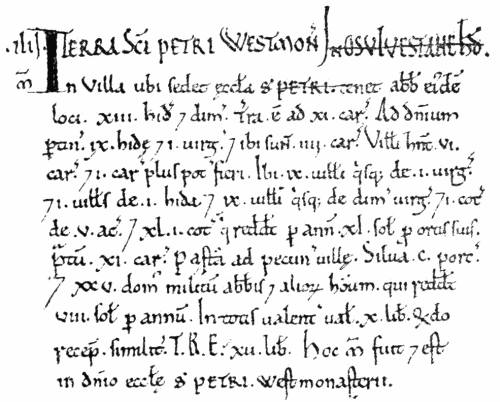 .iiij. TERRA SC̄I PETRI WESTMON̄ IN OSVLVESTANE HD̄.
m̄ In Villa ubi sedet eccl̄a s̄ PETRI. tenet abb̄ ei'dē
loci. xiii. hid̄ ⁊ dim̄. Tr̄a. ē ad xi. car̄. Ad dn̄ium
ptin̄. ix. hidę ⁊ i. virḡ. ⁊ ibi sun̄. iiii. car̄. Vill̄i hn̄t. vi.
car̄. ⁊ i. car̄ plus pot̄ fieri. Ibi. ix. uill̄i q̄sq; de. i. virḡ.
⁊ i. uill̄s de. i. hida. ⁊ ix. uill̄i q̄sq; de dim̄ virḡ. ⁊ i. cot̄
de. v. ac̄. ⁊ xl. i. cot̄ q̄ reddt̄ p ann̄. xl. sol̄ p ortis suis.
p̄tū. xi. car̄. Pastā ad pecun̄ uillę. Silua. c. porc̄.
⁊ xxv. dom̄ militū abb̄is ⁊ alioꝝ hōum. qui reddt̄
viii. sol̄ p annū. In totis ualent̄ ual̄. x. lib̄. &do
recep̄. similit̄. T. R. E. xii. lib̄. Hoc m̄ fuit ⁊ est
in dn̄io eccl̄ę s̄ PETRI. westmonasterii.